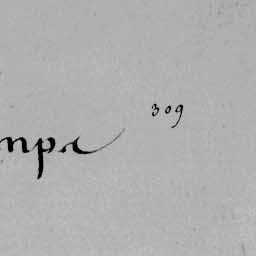 309
mpa